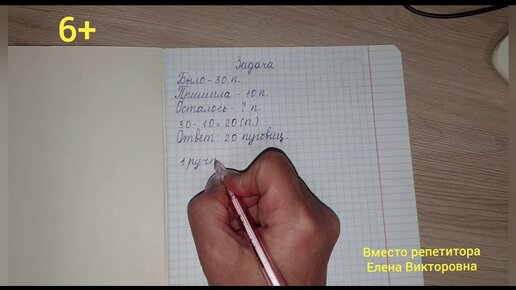 6+
Задача
Было - 30 п.
Пришила - 10 п.
Осталось - ? п.
30 - 10 = 20 (п.)
Ответ: 20 пуговиц
1 ручк
Вместо репетитора
Елена Викторовна